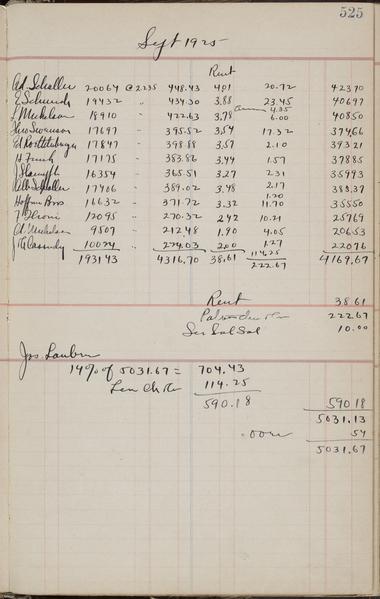 525
Sept 1925
Rent
Ad. Schaller 20064 @ 2.235 448.43 4.01 20.72 423.70
E Schmidt 19432 " 434.30 3.88 23.45 406.97
4.85
J Mickelson 18910 " 422.63 3.78 6.00 408.50
Geo Swanson 17697 - 395.52 3.54 17.32 374.66
17847 - 398.88 3.57 2.10 393.21
H Funk 17175 - 383.86 3.44 1.57 378.85
16354 - 365.51 3.27 2.31 359.93
Schaller 17406 - 389.02 3.48 2.17 383.37
1.20
Hoffman Bros 16632 - 371.72 3.32 11.70 355.50
12095 " 270.32 2.42 10.21 257.69
Mickelson 9507 212.48 1.90 4.05 206.53
Cassidy 10024 224.03 2.00 1.27 220.76
193143 4316.70 38.61 114.25 4169.67
222.67
Rent 38.61
222.67
Sal 10.00
Jos. Lauber
14% of 5031.67 = 704.43
Less 114.25
590.18 590.18
5031.13
54
5031.67